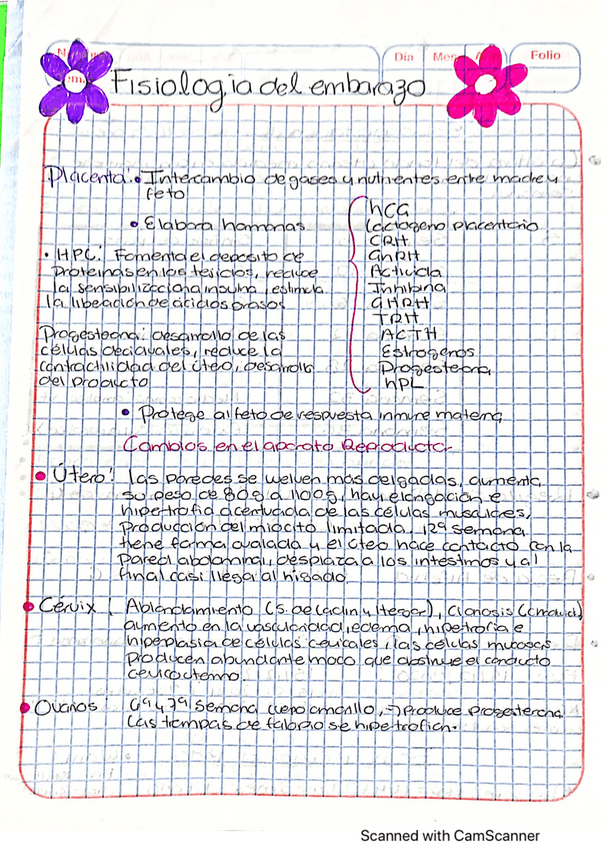 Dia Mes Folio
Fisiologia del embarazo
Placenta: • Intercambio de gases y nutrientes entre madre y
feto
• Elabora hormonas
hCG
Lactogeno placentario
CRH
GnRH
Activida
Inhibina
GHRH
TRH
ACTH
Estrogenos
Progesterona
hPL
• HPL: Fomenta el deposito de
proteinas en los tejidos, reduce
la sensibilizacion a insulina, estimula
la liberación de ácidos grasos
Progesterona: desarrollo de las
células deciduales, reduce la
contractilidad del útero, desarrollo
del producto
• Protege al feto de respuesta inmune materna
Cambios en el aparato Reproductor
• Útero: las paredes se vuelven más delgadas, aumenta
su peso de 80g a 1100g, hay elongación e
hipertrofia acentuada de las células musculares,
producción del miocito limitada, 12ª semana
tiene forma ovalada y el útero hace contacto con la
pared abdominal, desplaza a los intestinos y al
final casi llega al higado.
• Cérvix: Ablandamiento (S. de Ladin y Hegar), Cianosis (Chadwick)
aumento en la vascularidad, edema, hipertrofia e
hiperplasia de células cervicales, las células mucosas
producen abundante moco que obstruye el conducto
cervicouterino.
• Ovarios: 6ª y 7ª semana cuerpo amarillo, → produce progesterona
Las trompas de falopio se hipertrofian.
Scanned with CamScanner